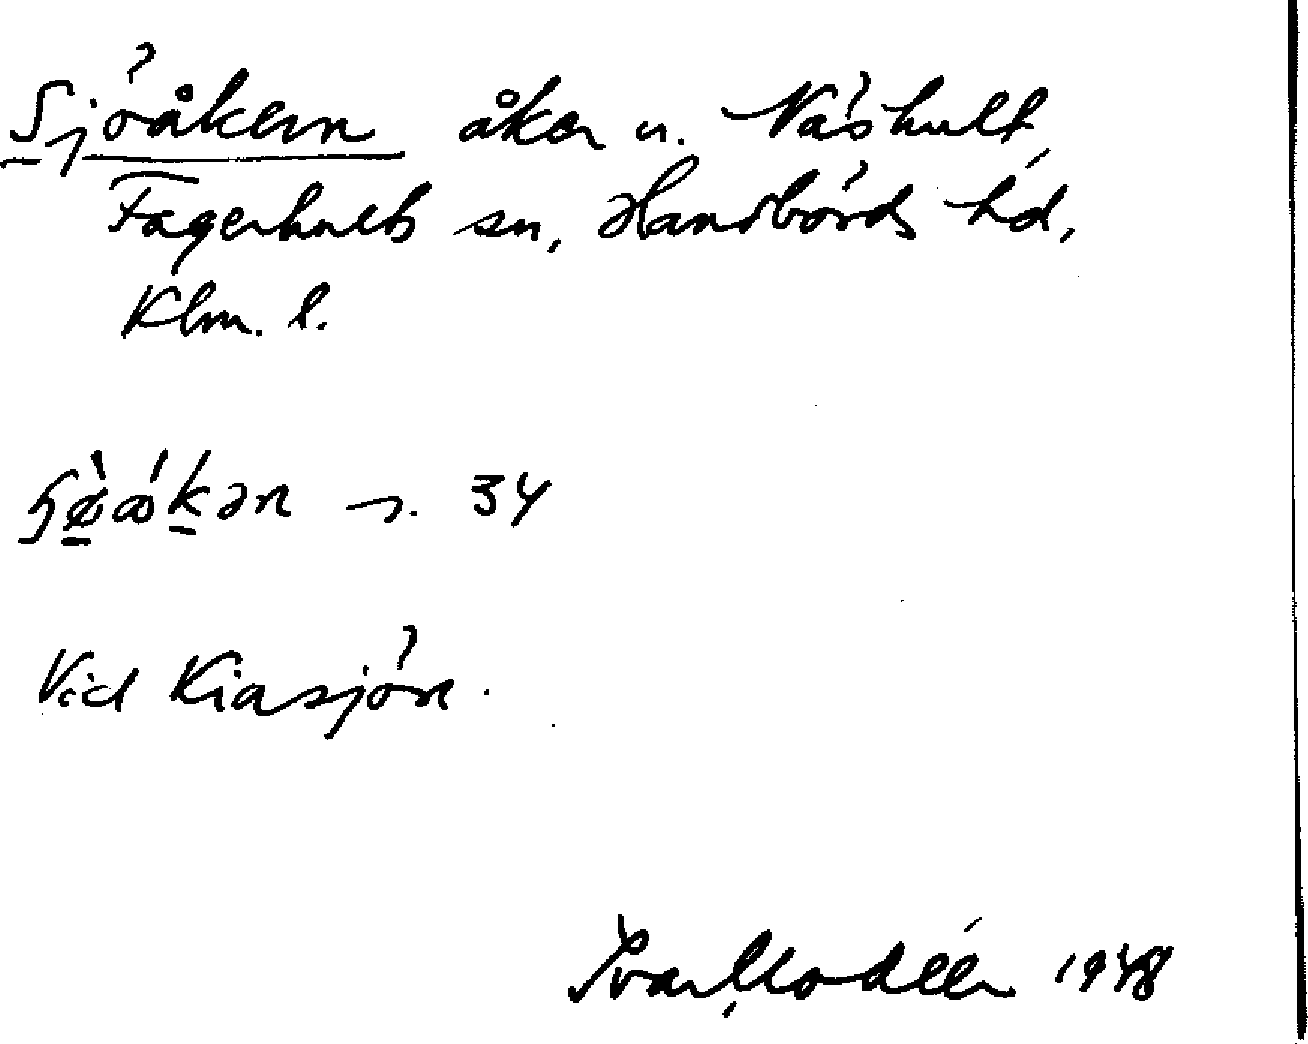 Sjöåkern åker u. Näshult,
Fagerhults sn, Handbörds hd,
Klm. l.
s. 34
Vid Kiasjön.
Ivar Modéer 1948